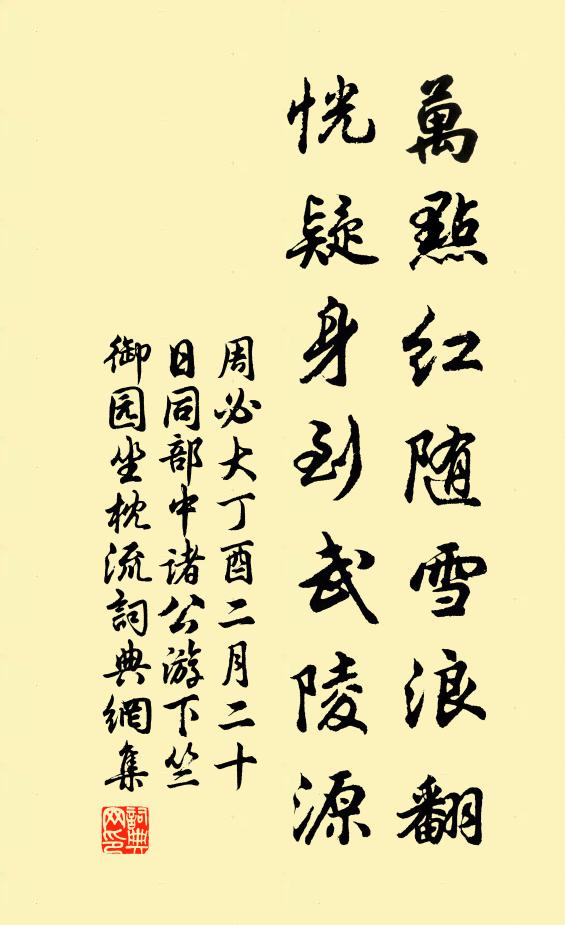 萬點红随雪浪翻
恍疑身到武陵源
周必大丁酉二月二十
日同部中诸公游下竺
御园坐枕流詞典網集
詞典
网印